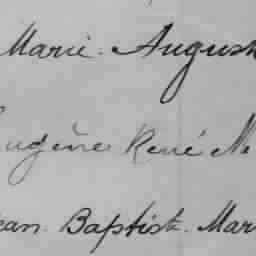 Marie. August
Eugène René M
Jean. Baptist. Mar